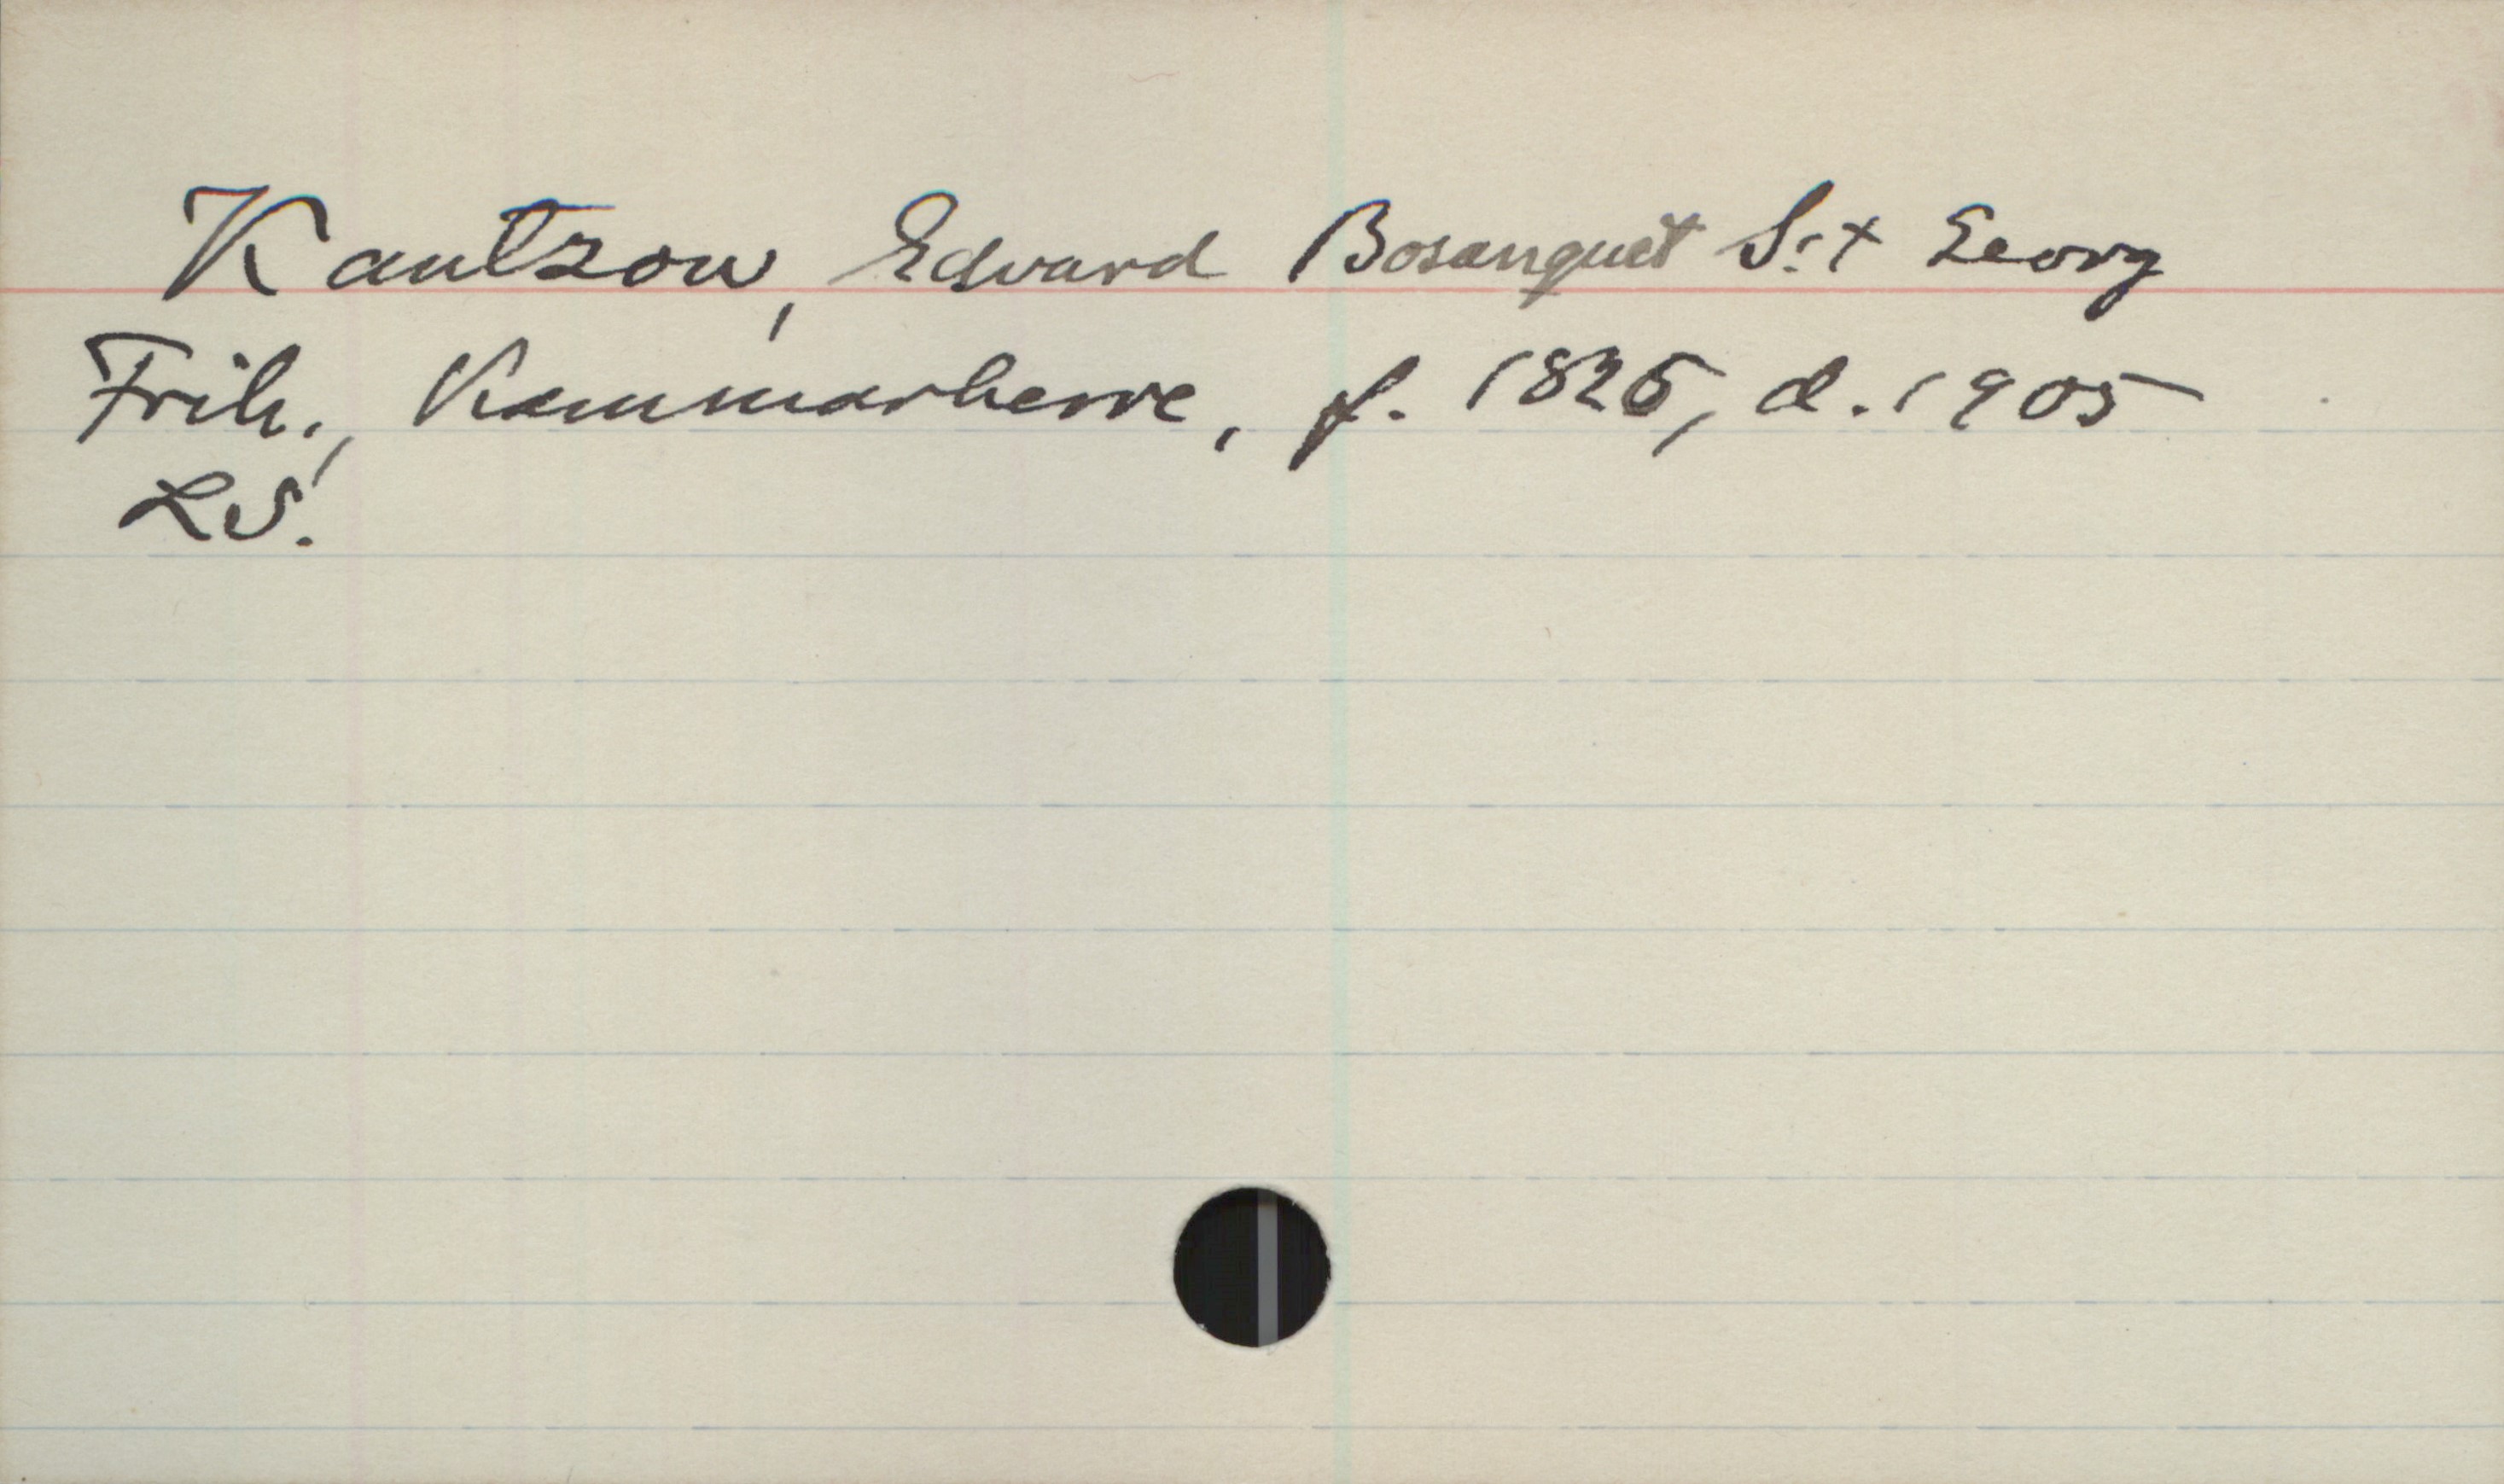 Kantzow, Edvard Bosanquet S:t Georg
Frih., Kammarherre, f. 1826, d. 1905
LS.